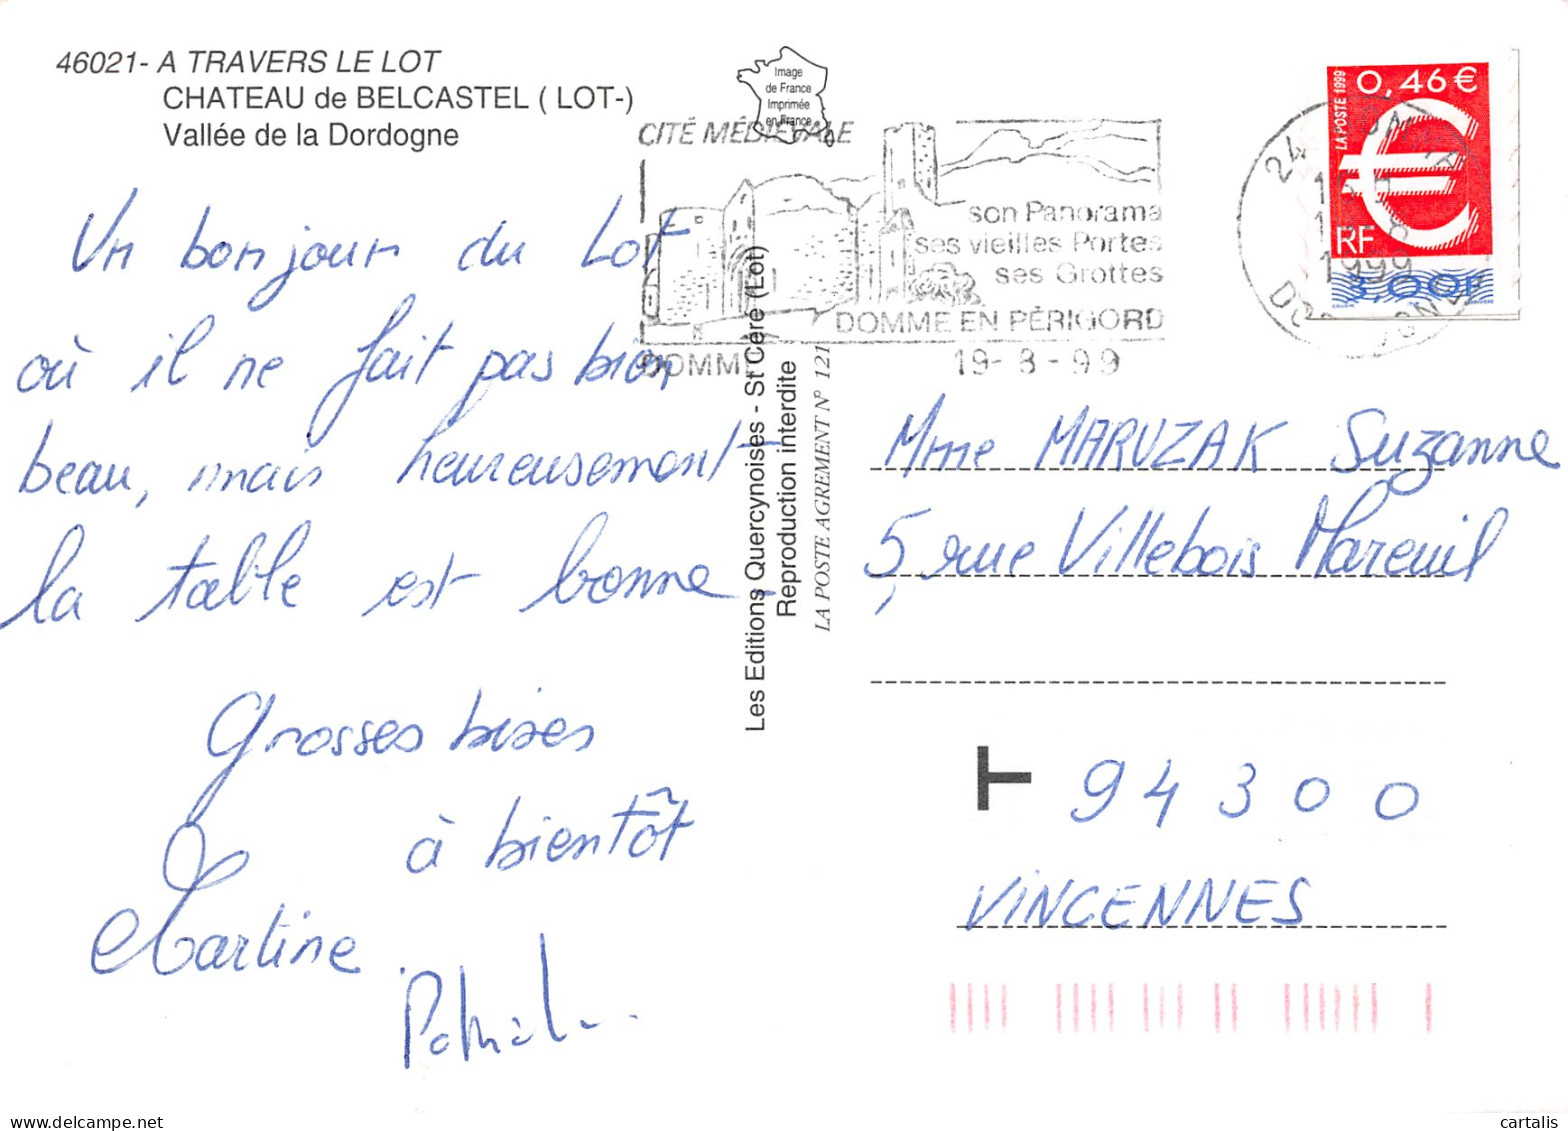 46021- A TRAVERS LE LOT
CHATEAU de BELCASTEL ( LOT-)
Vallée de la Dordogne
Image
de France
Imprimée
en France
CITÉ MÉDIÉVALE
son Panorama
ses vieilles Portes
ses Grottes
DOMME EN PÉRIGORD
DOMME
19-8-99
24
1999
LA POSTE 1999
0,46 €
RF
3,00F
Un bonjour du Lot
où il ne fait pas bien
beau, mais heureusement
la table est bonne
Grosses bises
à bientôt
Martine
Les Editions Quercynoises - St Céré (Lot)
Reproduction interdite
LA POSTE AGREMENT N° 121
Mme MARUZAK Suzanne
5, rue Villebois Mareuil
T 94300
VINCENNES
cartalis